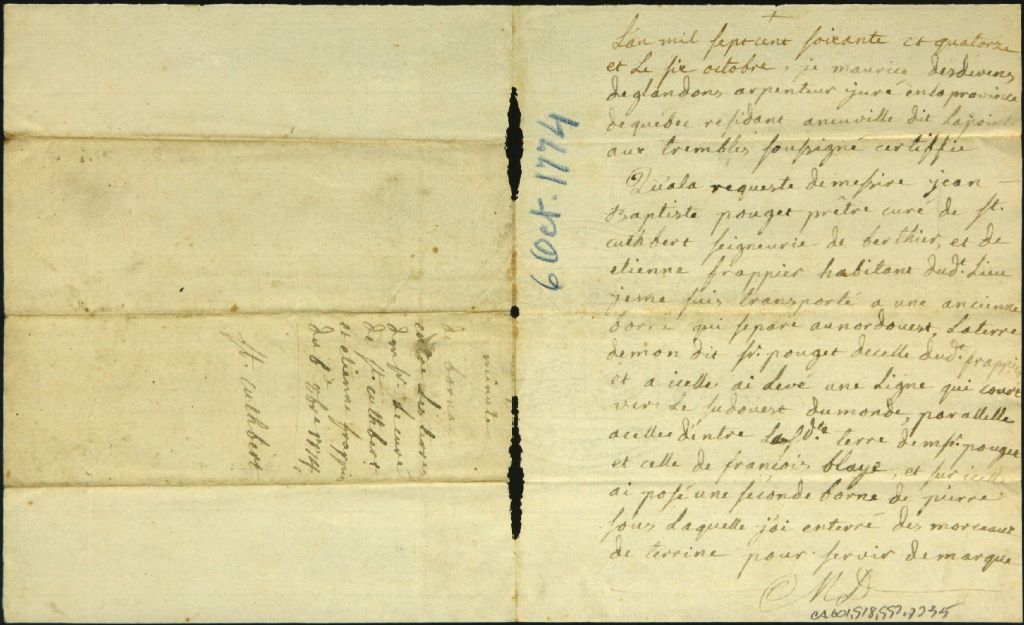 minute
de borne
entre les terres
de mr. le curé
de st. cuthbert
et etienne frappier
du 6e. 8bre 1774
st. cuthbert
6 Oct. 1774
L'an mil sept cent soixante et quatorze
et le six octobre, je maurice desdevens
de glandons arpenteur juré en la province
de quebec residant a neuville dit Lapointe
aux trembles soussigné certiffie
Qu'a la requeste de messire jean
Baptiste pouget prêtre curé de st.
cuthbert seigneurie de berthier, et de
etienne frappier habitant dudt. Lieu
je me suis transporté a une ancienne
borne qui separe au nordouest, La terre
de mon dit sr. pouget de celle dudt. frappier
et a icelles ai Levé une Ligne qui court
vers Le sudouest du monde, parallelle
a celle d'entre La sdte terre de mr. pouget
et celle de françois blaye, et sur icelle
ai posé une seconde borne de pierre
sous Laquelle j'ai enterré des morceaux
de terrine pour servir de marque
MD